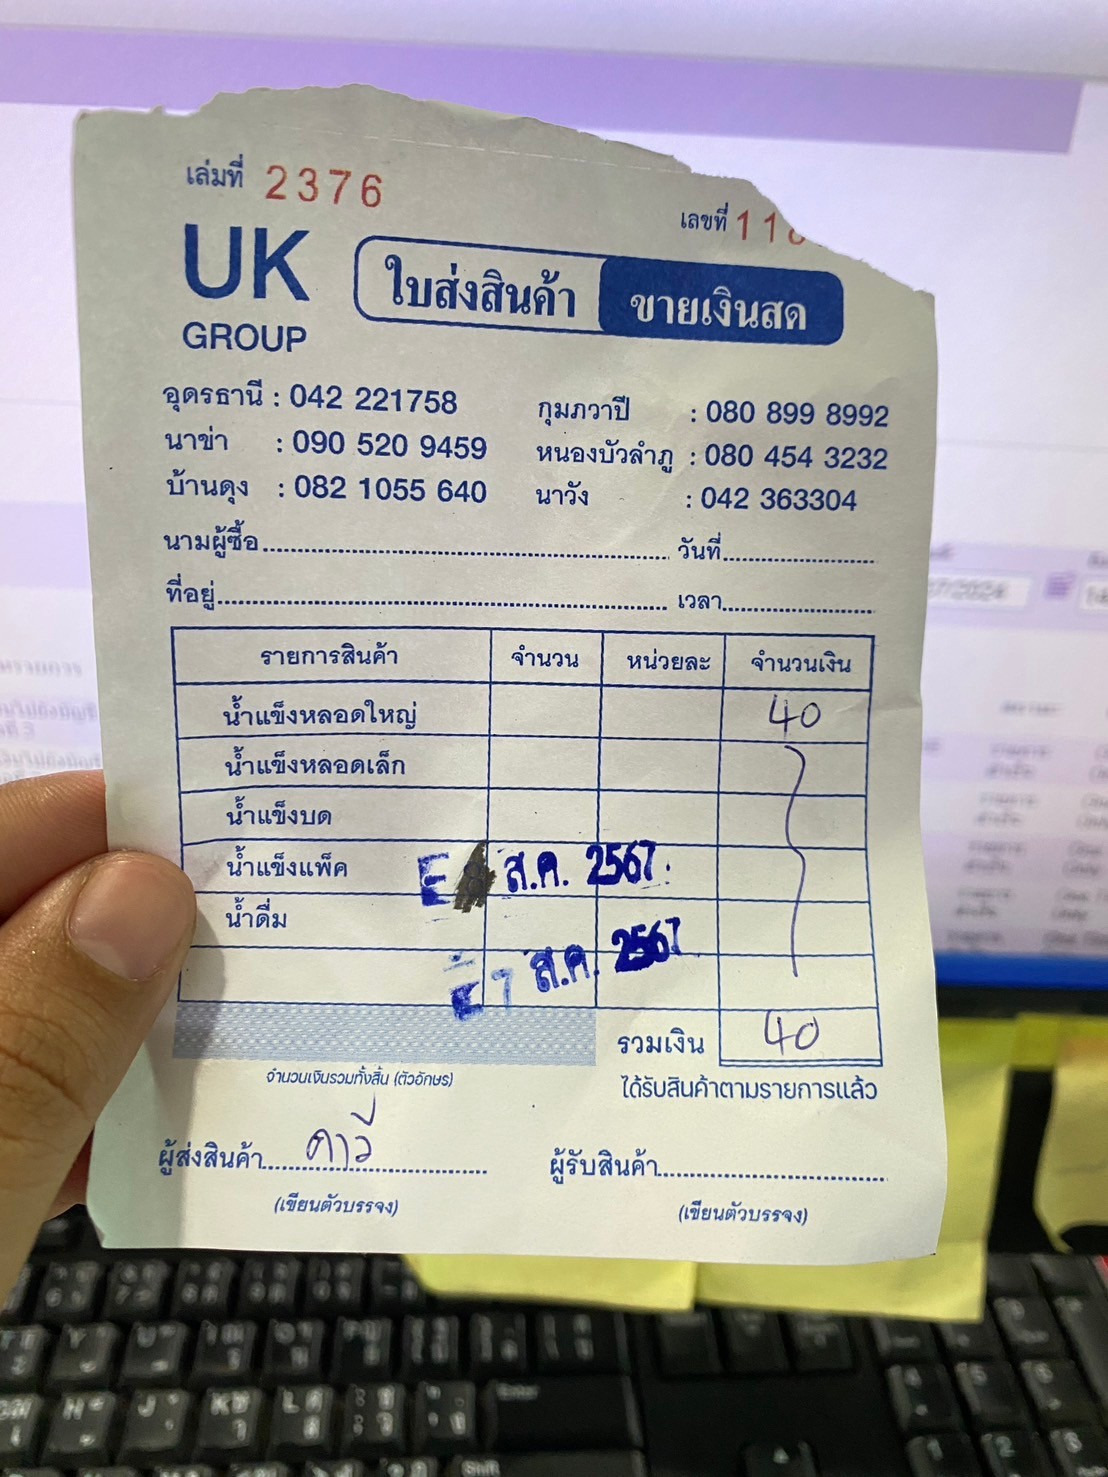 เล่มที่ 2376
เลขที่ 11
UK
GROUP
ใบส่งสินค้า ขายเงินสด
อุดรธานี : 042 221758 กุมภวาปี : 080 899 8992
นาข่า : 090 520 9459 หนองบัวลำภู : 080 454 3232
บ้านดุง : 082 1055 640 นาวัง : 042 363304
นามผู้ซื้อ วันที่
ที่อยู่ เวลา
รายการสินค้า จำนวน หน่วยละ จำนวนเงิน
น้ำแข็งหลอดใหญ่ 40
น้ำแข็งหลอดเล็ก
น้ำแข็งบด
น้ำแข็งแพ็ค
ส.ค. 2567
น้ำดื่ม
7 ส.ค. 2567
รวมเงิน 40
จำนวนเงินรวมทั้งสิ้น (ตัวอักษร)
ได้รับสินค้าตามรายการแล้ว
ผู้ส่งสินค้า ดาวี ผู้รับสินค้า
(เขียนตัวบรรจง) (เขียนตัวบรรจง)